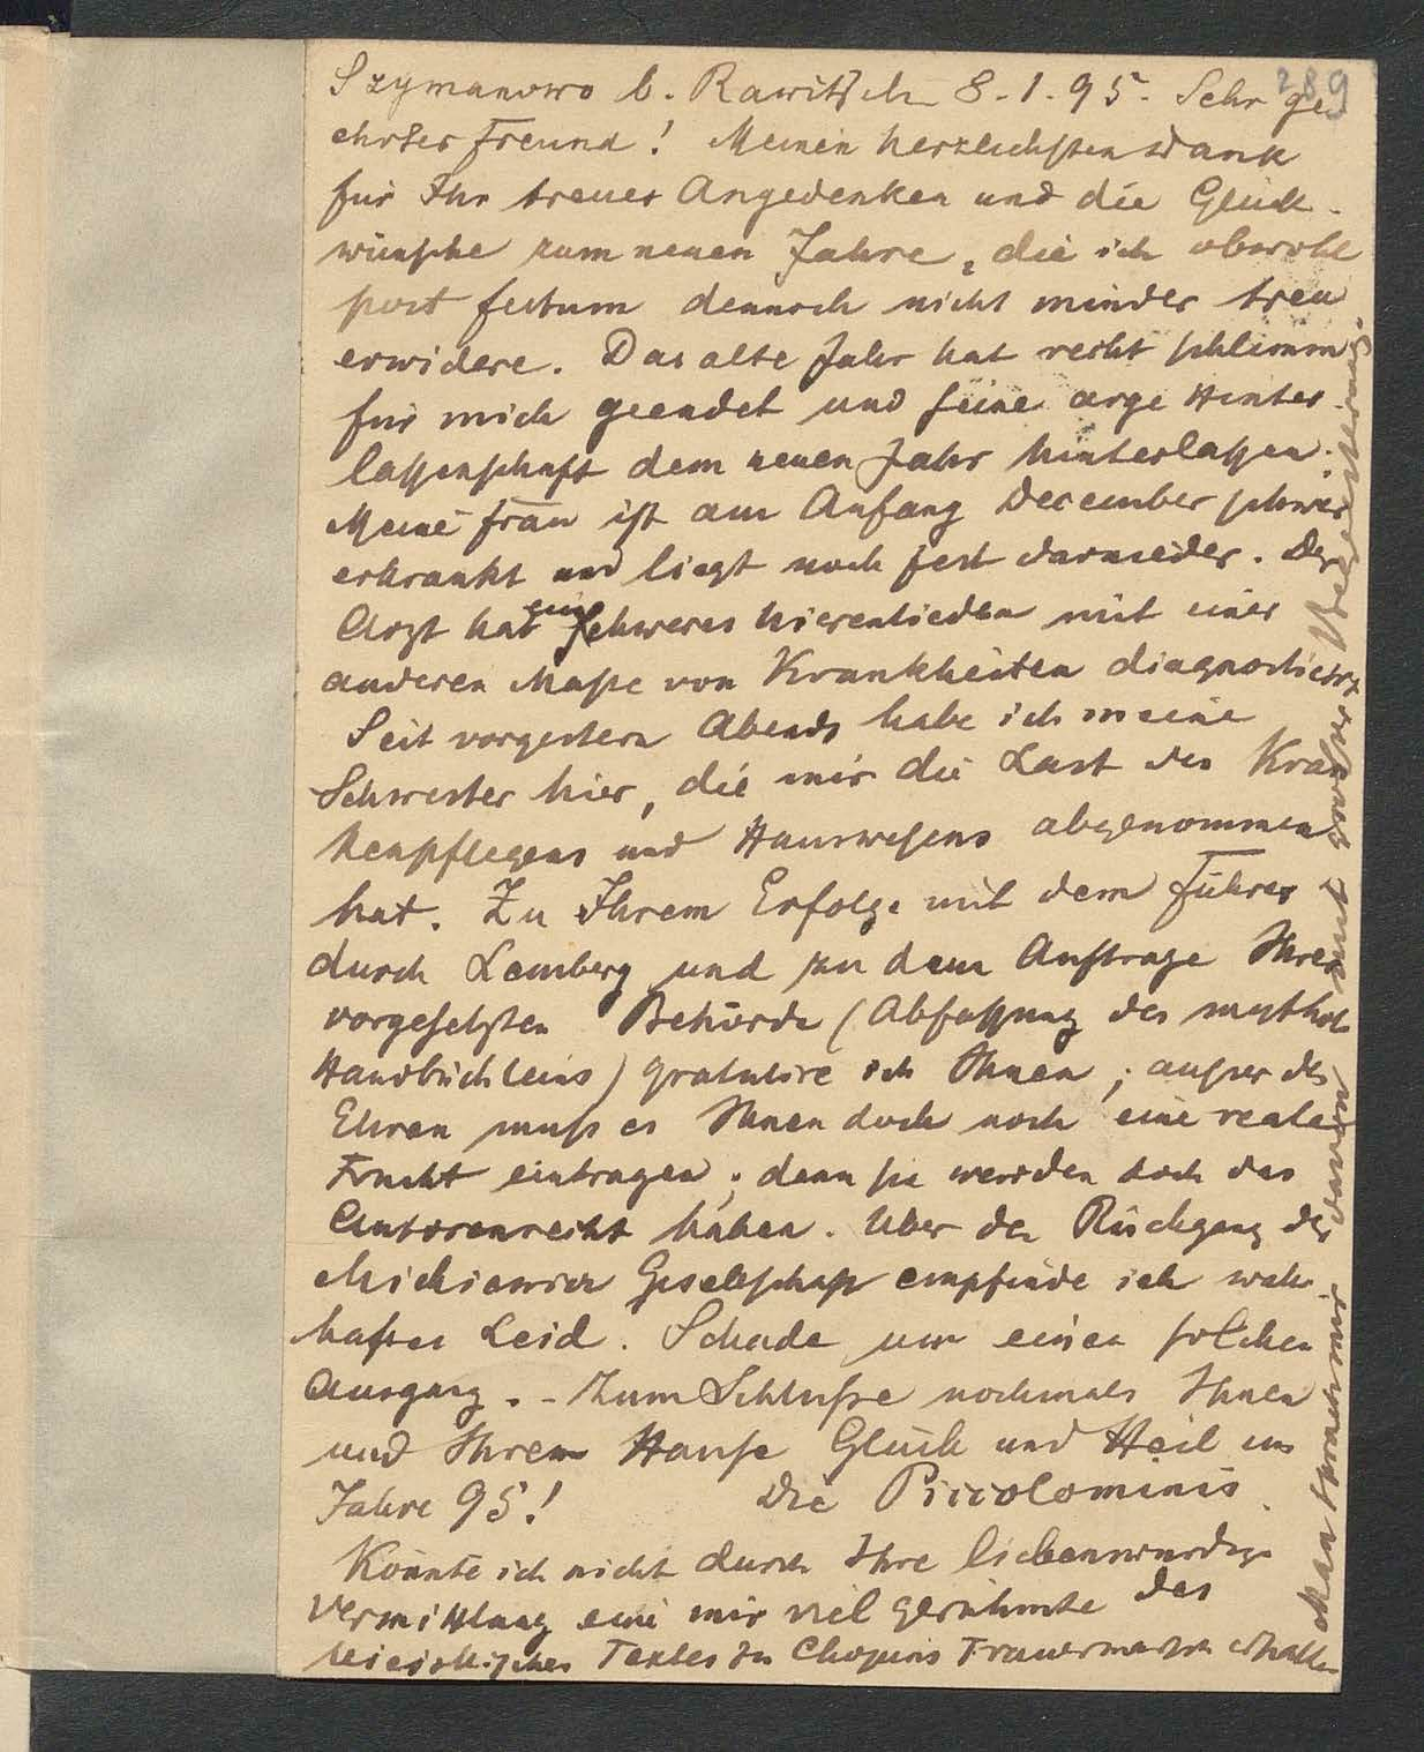 289
Szymanowo b. Rawitsch 8.1.95. Sehr ge-
ehrter Freund! Meinen herzlichsten Dank
für Ihr treues Angedenken und die Glück-
wünsche zum neuen Jahre, die ich obwohl
post festum dennoch nicht minder treu
erwidere. Das alte Jahr hat recht schlimm
für mich geendet und seine arge Hinter-
lassenschaft dem neuen Jahr hinterlassen.
Meine Frau ist am Anfang December schwer
erkrankt und liegt noch fest darnieder. Der
Arzt hat ein schweres Nierenleiden mit einer
anderen Masse von Krankheiten diagnosticirt
Seit vorgestern Abends habe ich meine
Schwester hier, die mir die Last des Kran
kenpflegens und Hauswesens abgenommen
hat. Zu Ihrem Erfolge mit dem Führer
durch Lemberg und zu dem Auftrage Ihrer
vorgesetzten Behörde (Abfassung des mythol
Handbüchleins) gratulire ich Ihnen; ausser der
Ehren muss es Ihnen doch noch eine reale
Frucht eintragen; denn sie werden doch das
Autorenrecht haben. Über den Rückgang der
Mickiewicz Gesellschaft empfinde ich wahr-
haftes Leid. Schade um einen solchen
Ausgang. - Zum Schlusse nochmals Ihnen
und Ihrem Hause Glück und Heil im
Jahre 95! Die Piccolominis.
Könnte ich nicht durch Ihre liebenswürdige
Vermittlung eine mir viel gerühmte des
Textes zu Chopins Trauermarsch erhalten
Man sprach mir davon mit grosser Begeisterung.